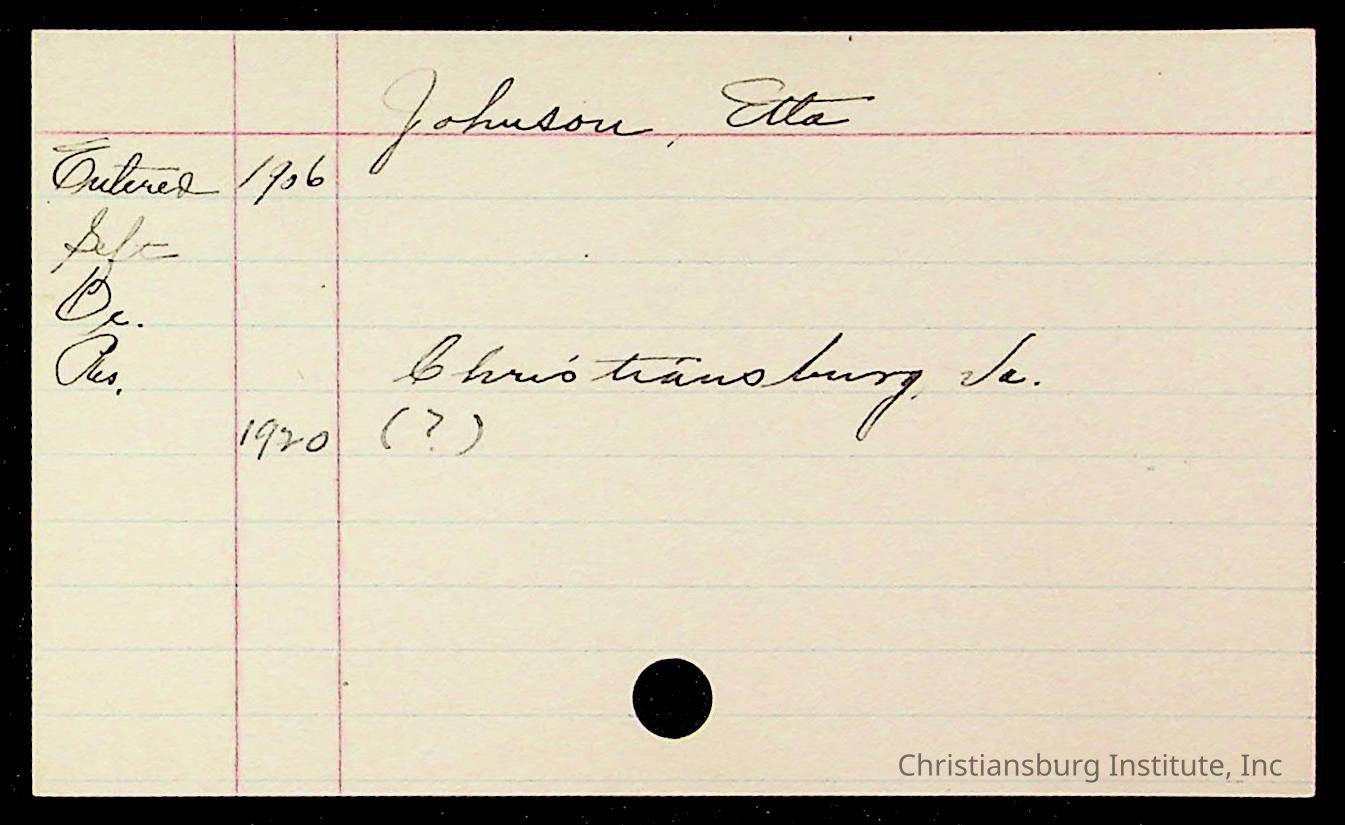 Johnson, Etta
Entered 1906
Left
De.
Res. Christiansburg, Va.
1920 (?)
Christiansburg Institute, Inc